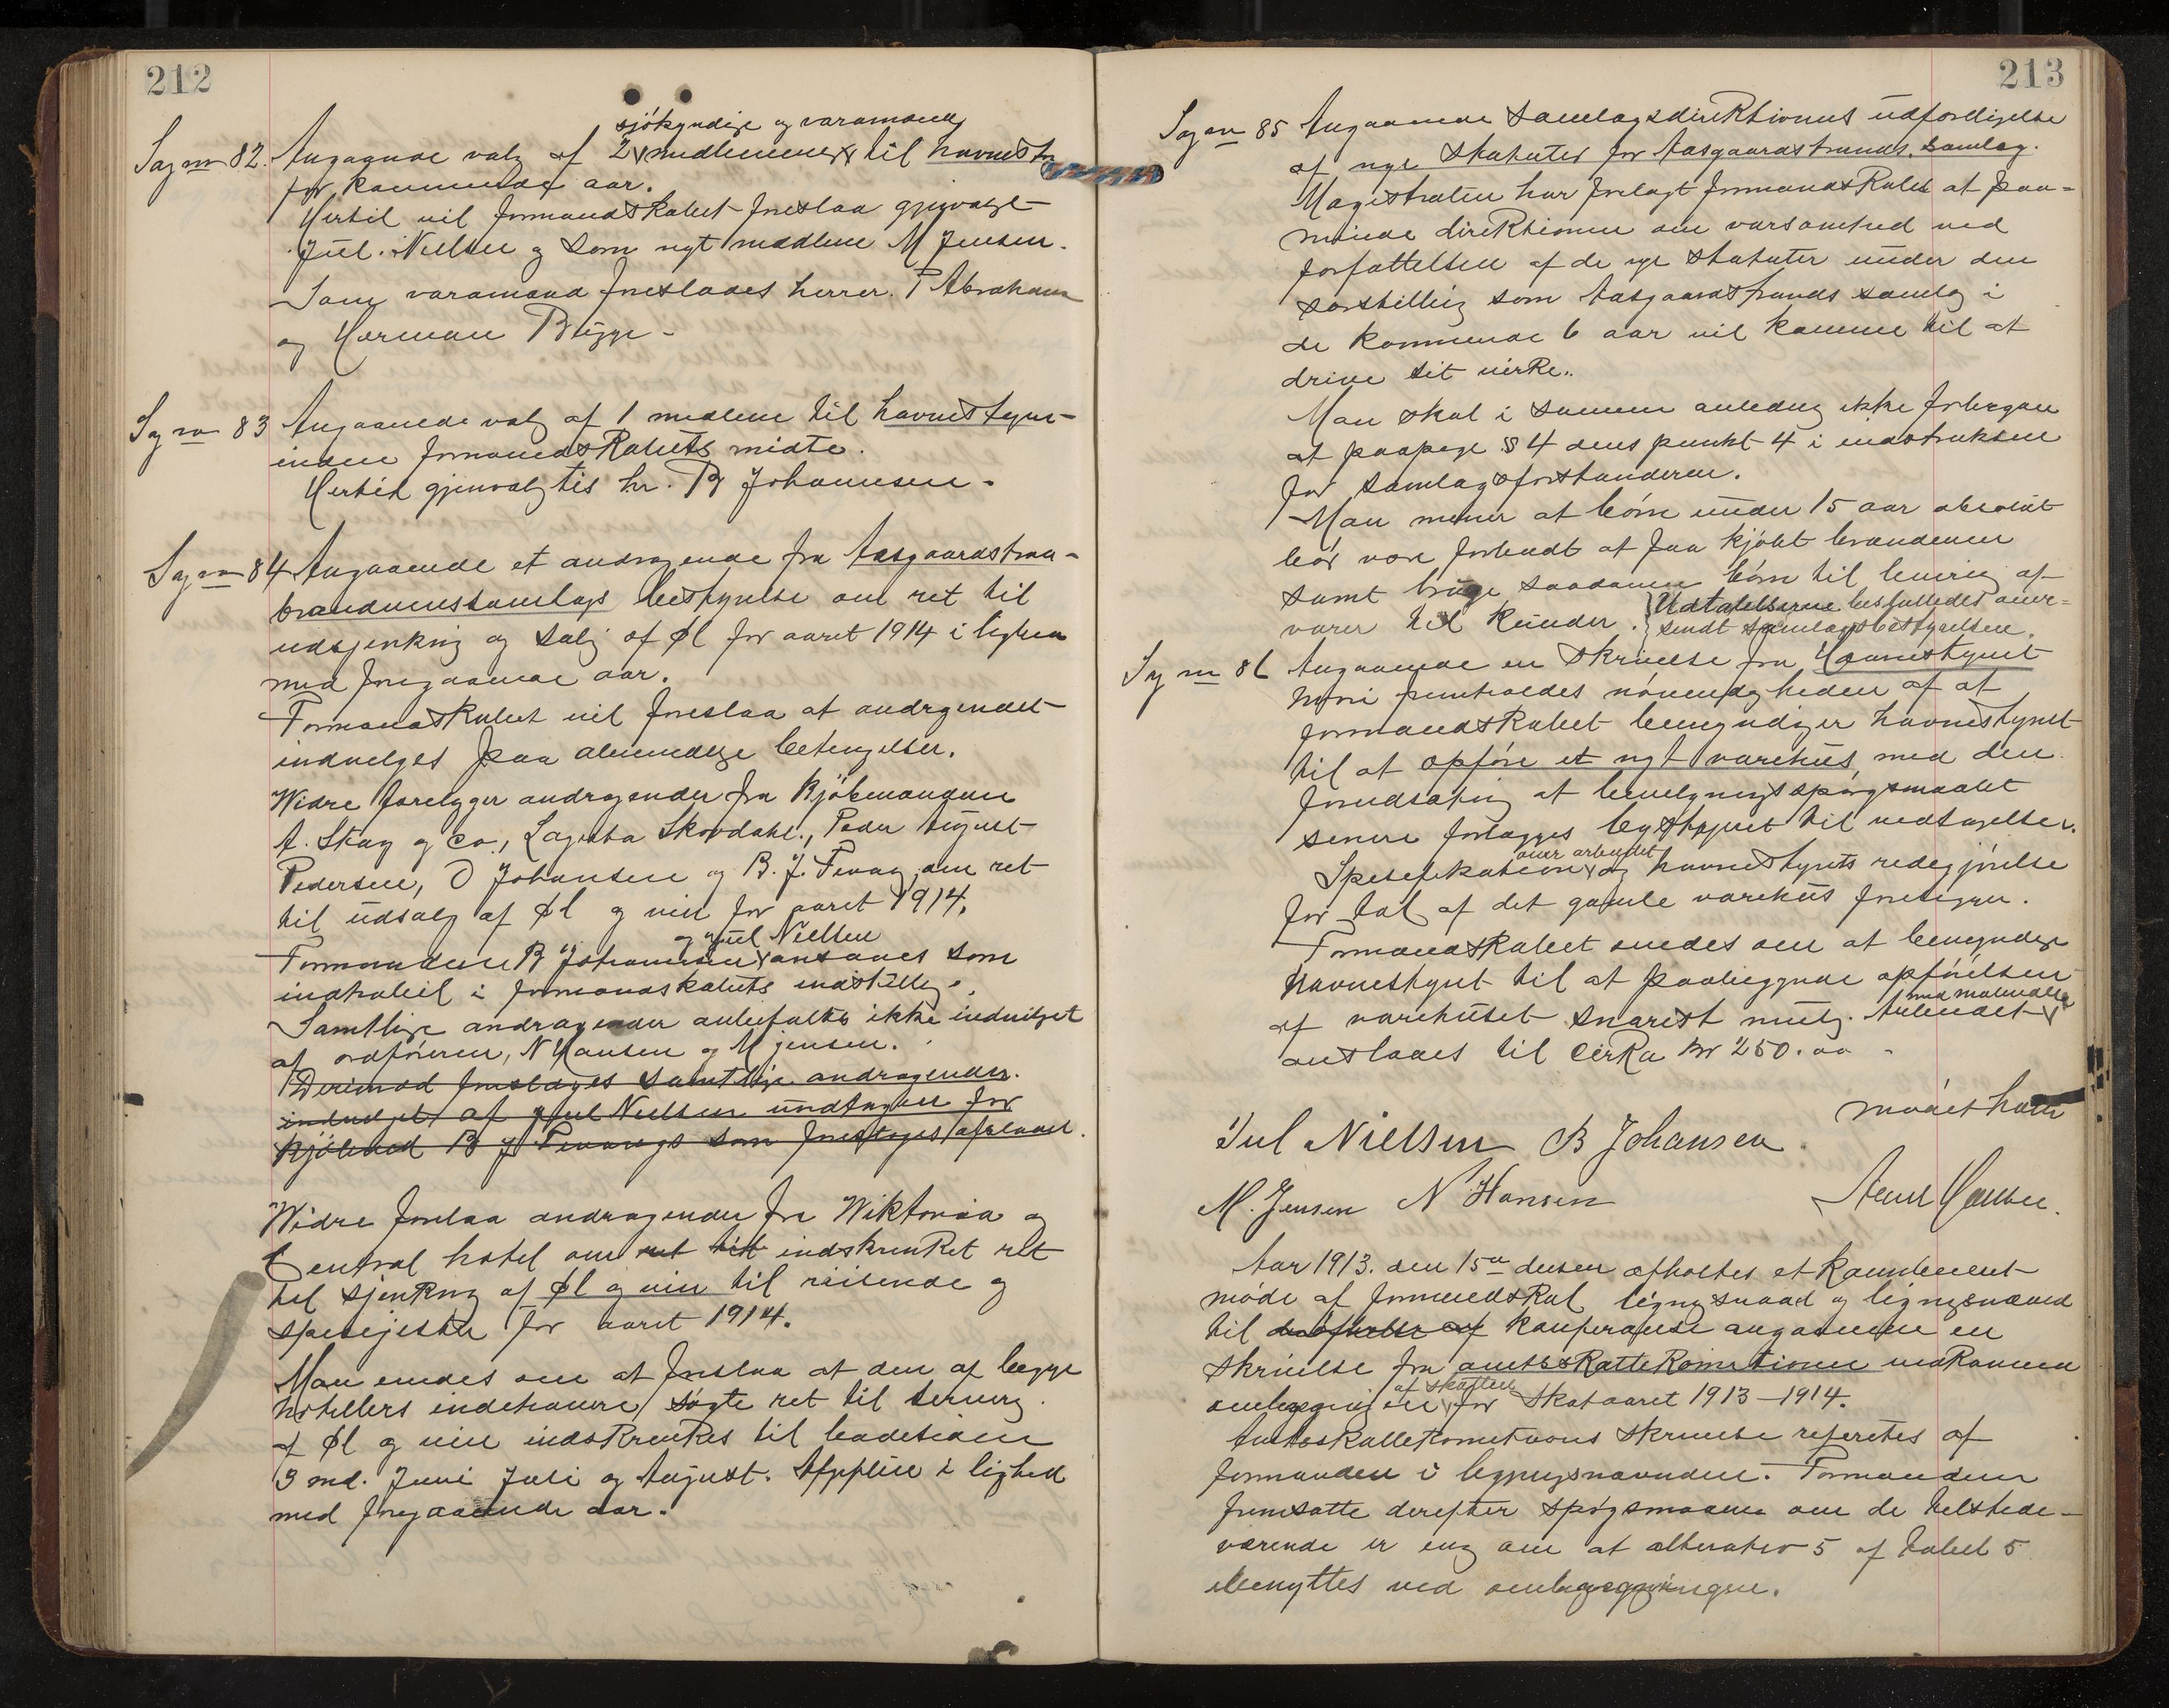 212
Sag no 82. Angaaende valg af 2 sjökyndige medlemmer og varamænd til havnestyr
for kommende aar.
Hertil vil formandskabet foreslaa gjenvalgt
Juel. Nielsen og som nyt medlem M Jensen.
Som varamænd foreslaaes herrer. T Abraham
og Herman Bügge -
Sag no 83 Angaaende valg af 1 medlem til havnestyre-
inden formandskabets midte.
Hertil gjenvalgtes hr. B Johannesen.
Sag no 84 Angaaende et andragende fra Aasgaardstran-
brændevinssamlags bestyrelse om ret til
udsjenkning og salg af øl for aaret 1914 i lighed
med foregaaende aar.
Formandskabet vil foreslaa at andragendet
indvilges paa almindelige betingelser.
Widre forelygger andragender fra Kjöbmændene
A. Skaug og Co., Lagertha Skovdahl., Peder August
Pedersen, O Johansen og B. J. Fevang om ret
til üdsalg af øl og vin for aaret 1914.
Formanden B Johannesen og Juel Nielsen ansaaes som
inhabil i formandskabets indstilling.
Samtlige andragender anbefaltes ikke indvilget
af ordföreren, N Hansen og M Jensen.
Derimod foreslages samtlige andragender
indvilget af Juel Nielsen undtagen for
Kjöbmd B J Fevangs som foreslages afslaaet.
Widre forelaa andragender fra Wiktoria og
Central hotel om ret til indskrenket ret
til sjenkning af øl og vin til reisende og
spisegjester for aaret 1914.
Man enedes om at foreslaa at den af begge
hotellers indehavere sögte ret til servering
af øl og vin indskrenkes til badetiden
3 md. Juni Juli og August. Afgiften i lighed
med foregaaende aar.
213
Sag no 85 Angaaende samlagsdirektionens udfærdigelse
af nye statuter for Aasgaardstrands samlag.
Magistraten har forelagt formandskabet at paa-
minde direktionen om varsomhed ved
forfattelsen af de nye statuter under den
særstilling som Aasgaardstrands samlag i
de kommende 6 aar vil komme til at
drive sit virke.
Man skal i samme anledning ikke forbigaa
at paapege § 4 dens punkt 4 i instruksen
for samlagsforstanderen.
Man mener at börn under 15 aar absolut
bör være forbudt at faa kjöbt brændevin
samt brüge saadanne börn til levering af
varer til Künder. Udtalelserne besluttedes over-
sendt samlagsbestyrelsen.
Sag no 86 Angaaende en skrivelse fra Havnestyret
hvori fremholdes nödvendigheden af at
formandskabet bemyndiger havnestyret
til at opföre et nyt varehüs med den
forudsætning at bevilgningsspörgsmaalet
senere forlægges bystyret til vedtagelse.
Spesefikation over arbeidet og havnestyrets redegjörelse
for tab af det gamle varehüs foreligger.
Formandskabet enedes om at bemyndige
Havnestyret til at paabegynde opförelsen
af varehüset snarest mulig. Arbeidet med materialer
anslaaes til Cirka kr 250.00 -
mödet hævet
Jul Nielsen B Johansen
M. Jensen N Hansen
Aar 1913. den 15de desem afholtes et kombineret
möde af formandskab ligningsraad og ligningsnævnd
til konferanse angaaende en
skrivelse fra amtsskattekomitionen vedkommen
omlægning af skatten for skataaret 1913-1914.
Amtsskattekometions skrivelse referetes af
formanden i ligningsnævnden. Formanden
fremsatte derefter spörgsmaalet om de tilstede-
værende er enig om at altenativ 5 af tabel 5
benyttes ved omlægningen.